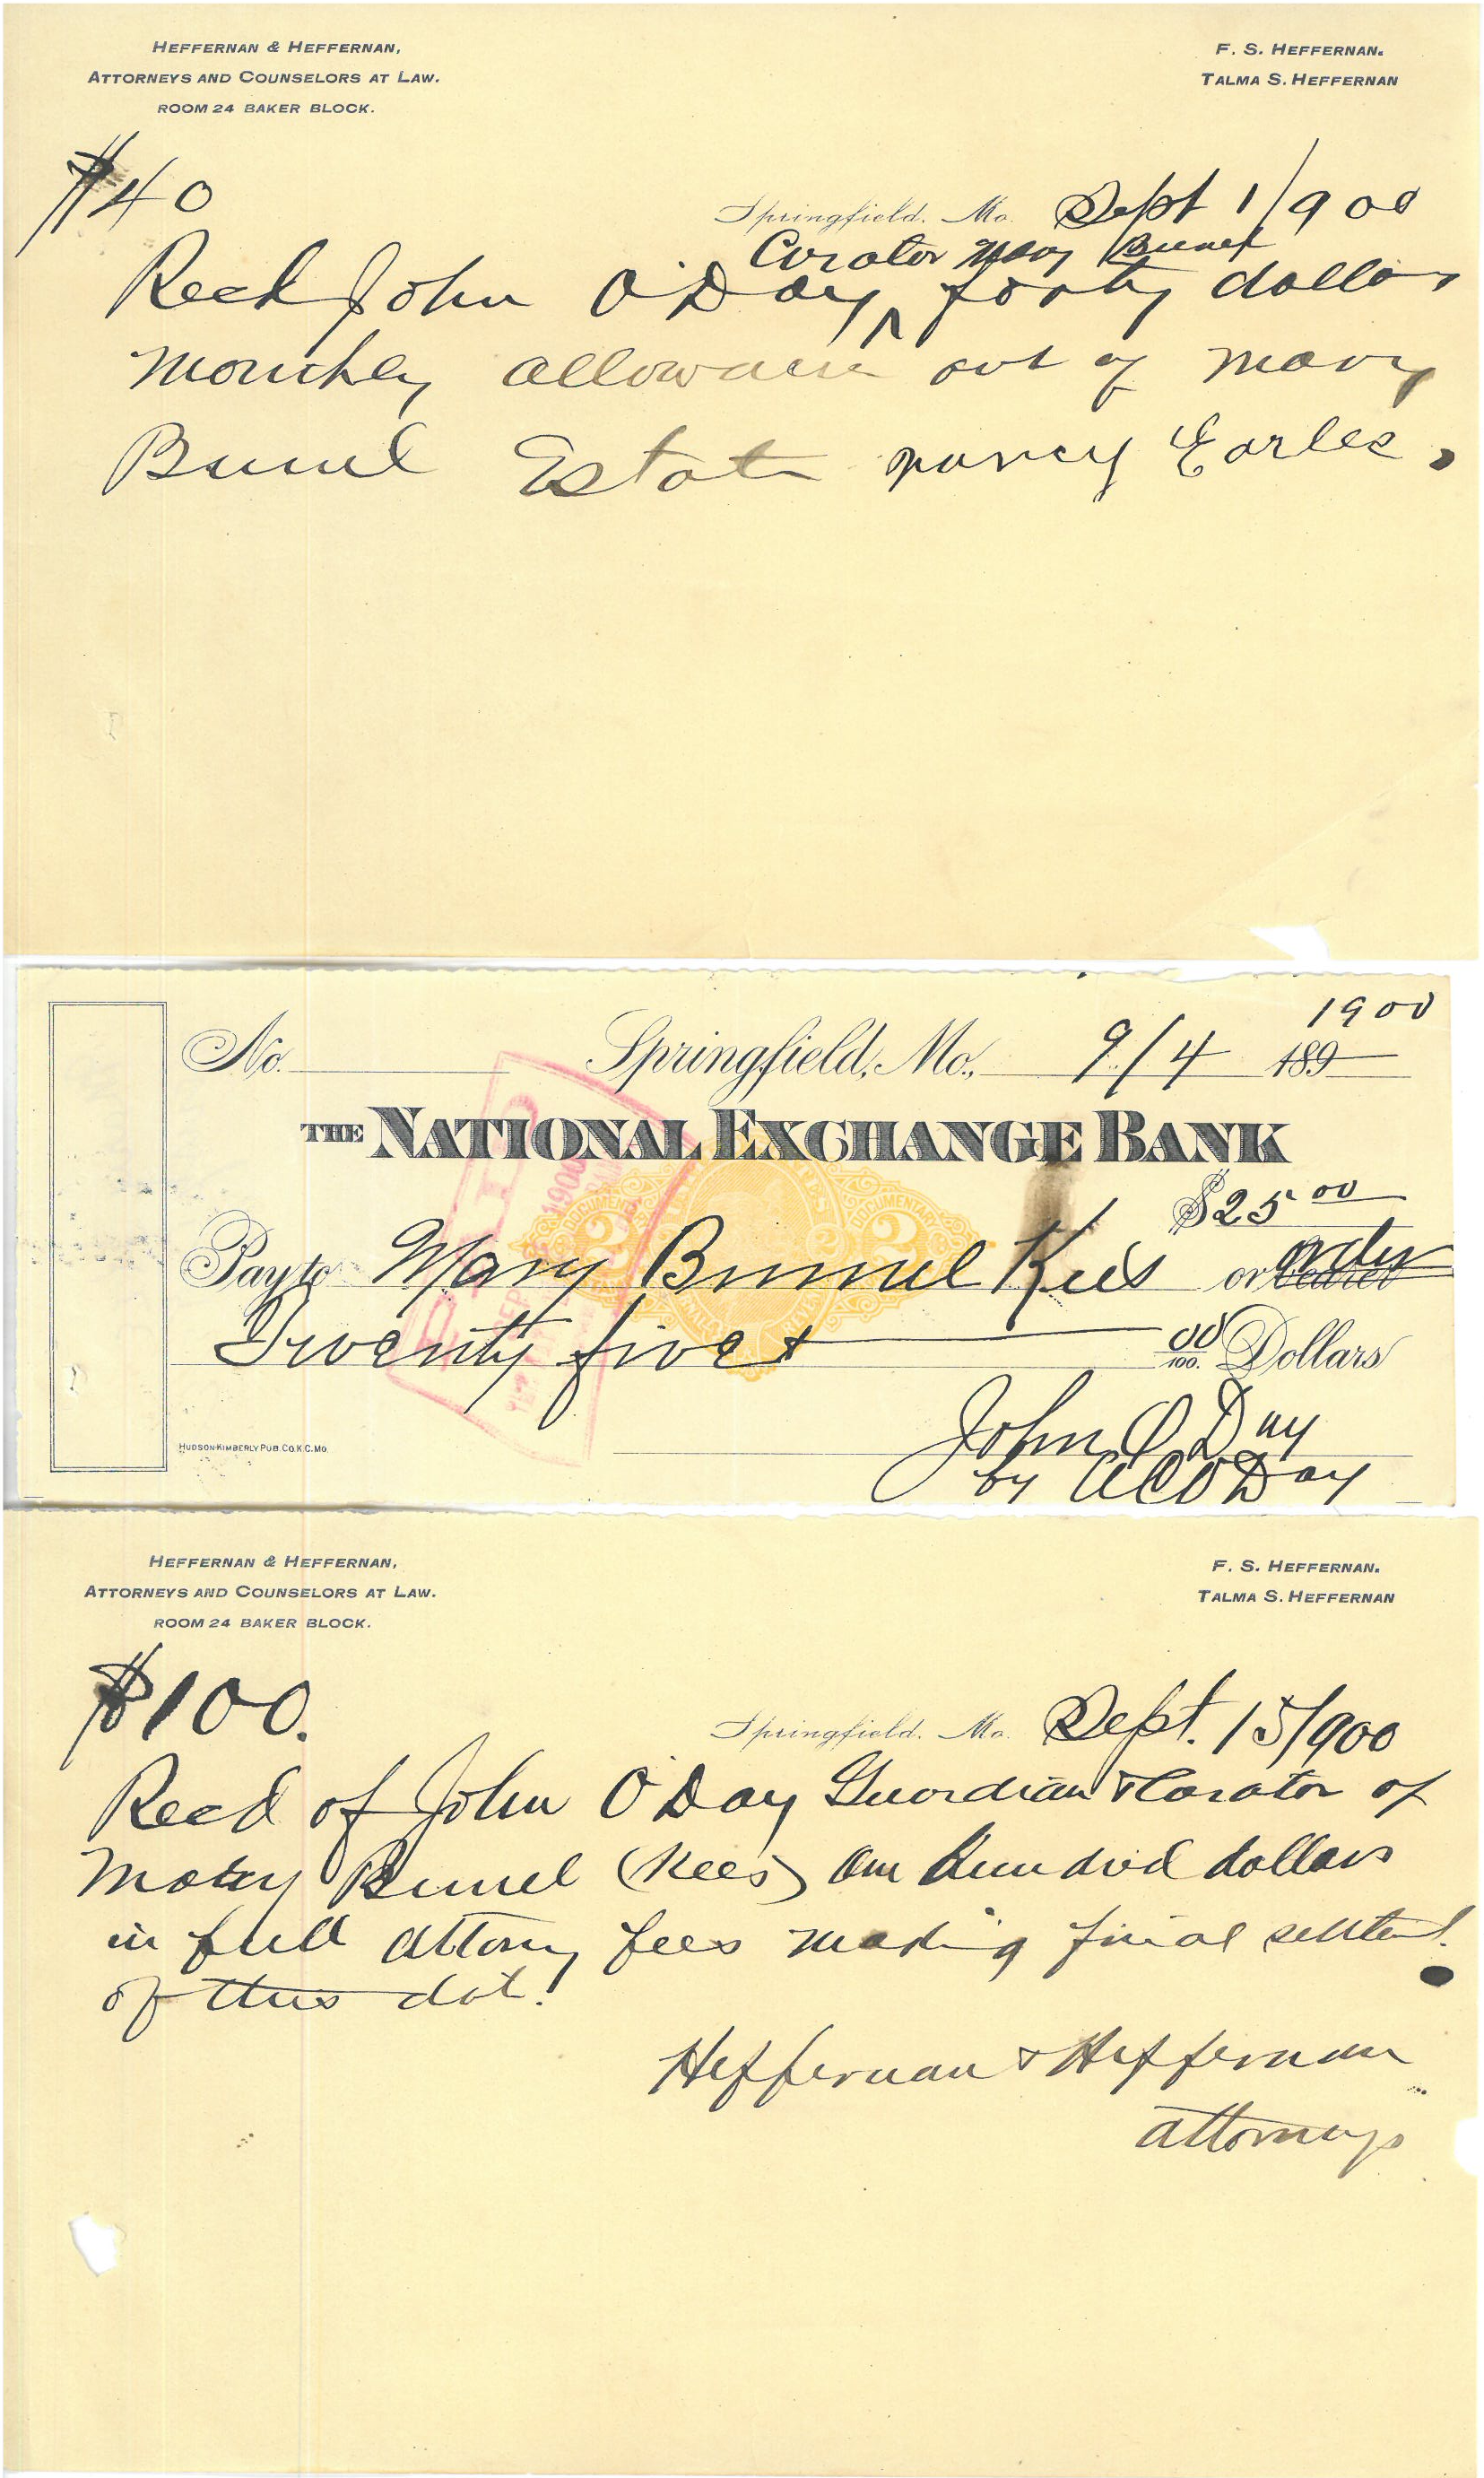 HEFFERNAN & HEFFERNAN,
ATTORNEYS AND COUNSELORS AT LAW.
ROOM 24 BAKER BLOCK.
F. S. HEFFERNAN.
TALMA S. HEFFERNAN
$40
Springfield, Mo. Sept 1/900
Curator Mary Bunel
Recd John O'Day ^ forty dollars
Monthly allowance out of Mary
Bunel Estate Nancy Earles.
No. Springfield, Mo., 9/4 1900 189
THE NATIONAL EXCHANGE BANK
$25 00
Pay to Mary Bunnel Kees or order bearer
Twenty five & 00/100. Dollars
John O Day
by A C O Day
HUDSON-KIMBERLY PUB. CO. K.C. MO.
DOCUMENTARY
2 2
PAID
SEP 1900
HEFFERNAN & HEFFERNAN,
ATTORNEYS AND COUNSELORS AT LAW.
ROOM 24 BAKER BLOCK.
F. S. HEFFERNAN.
TALMA S. HEFFERNAN
$100.
Springfield, Mo. Sept. 15/900
Recd of John O'Day Guardian & Curator of
Mary Bunel (Kees) One hundred dollars
in full attorny fees making final settlemt.
of this dat.
Heffernan & Heffernan
attorneys